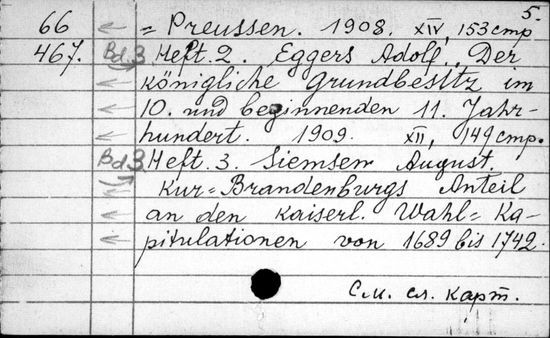 5.
66 = Preussen. 1908. XIV, 153 стр
467. Bd.3 Heft. 2. Eggers Adolf. Der
königliche Grundbesitz im
10. und beginnenden 11. Jahr-
hundert. 1909. XII, 149 стр.
Bd.3 Heft. 3. Siemsen August.
Kur=Brandenburgs Anteil
an den kaiserl. Wahl=Ka-
pitulationen von 1689 bis 1742.
См. сл. карт.